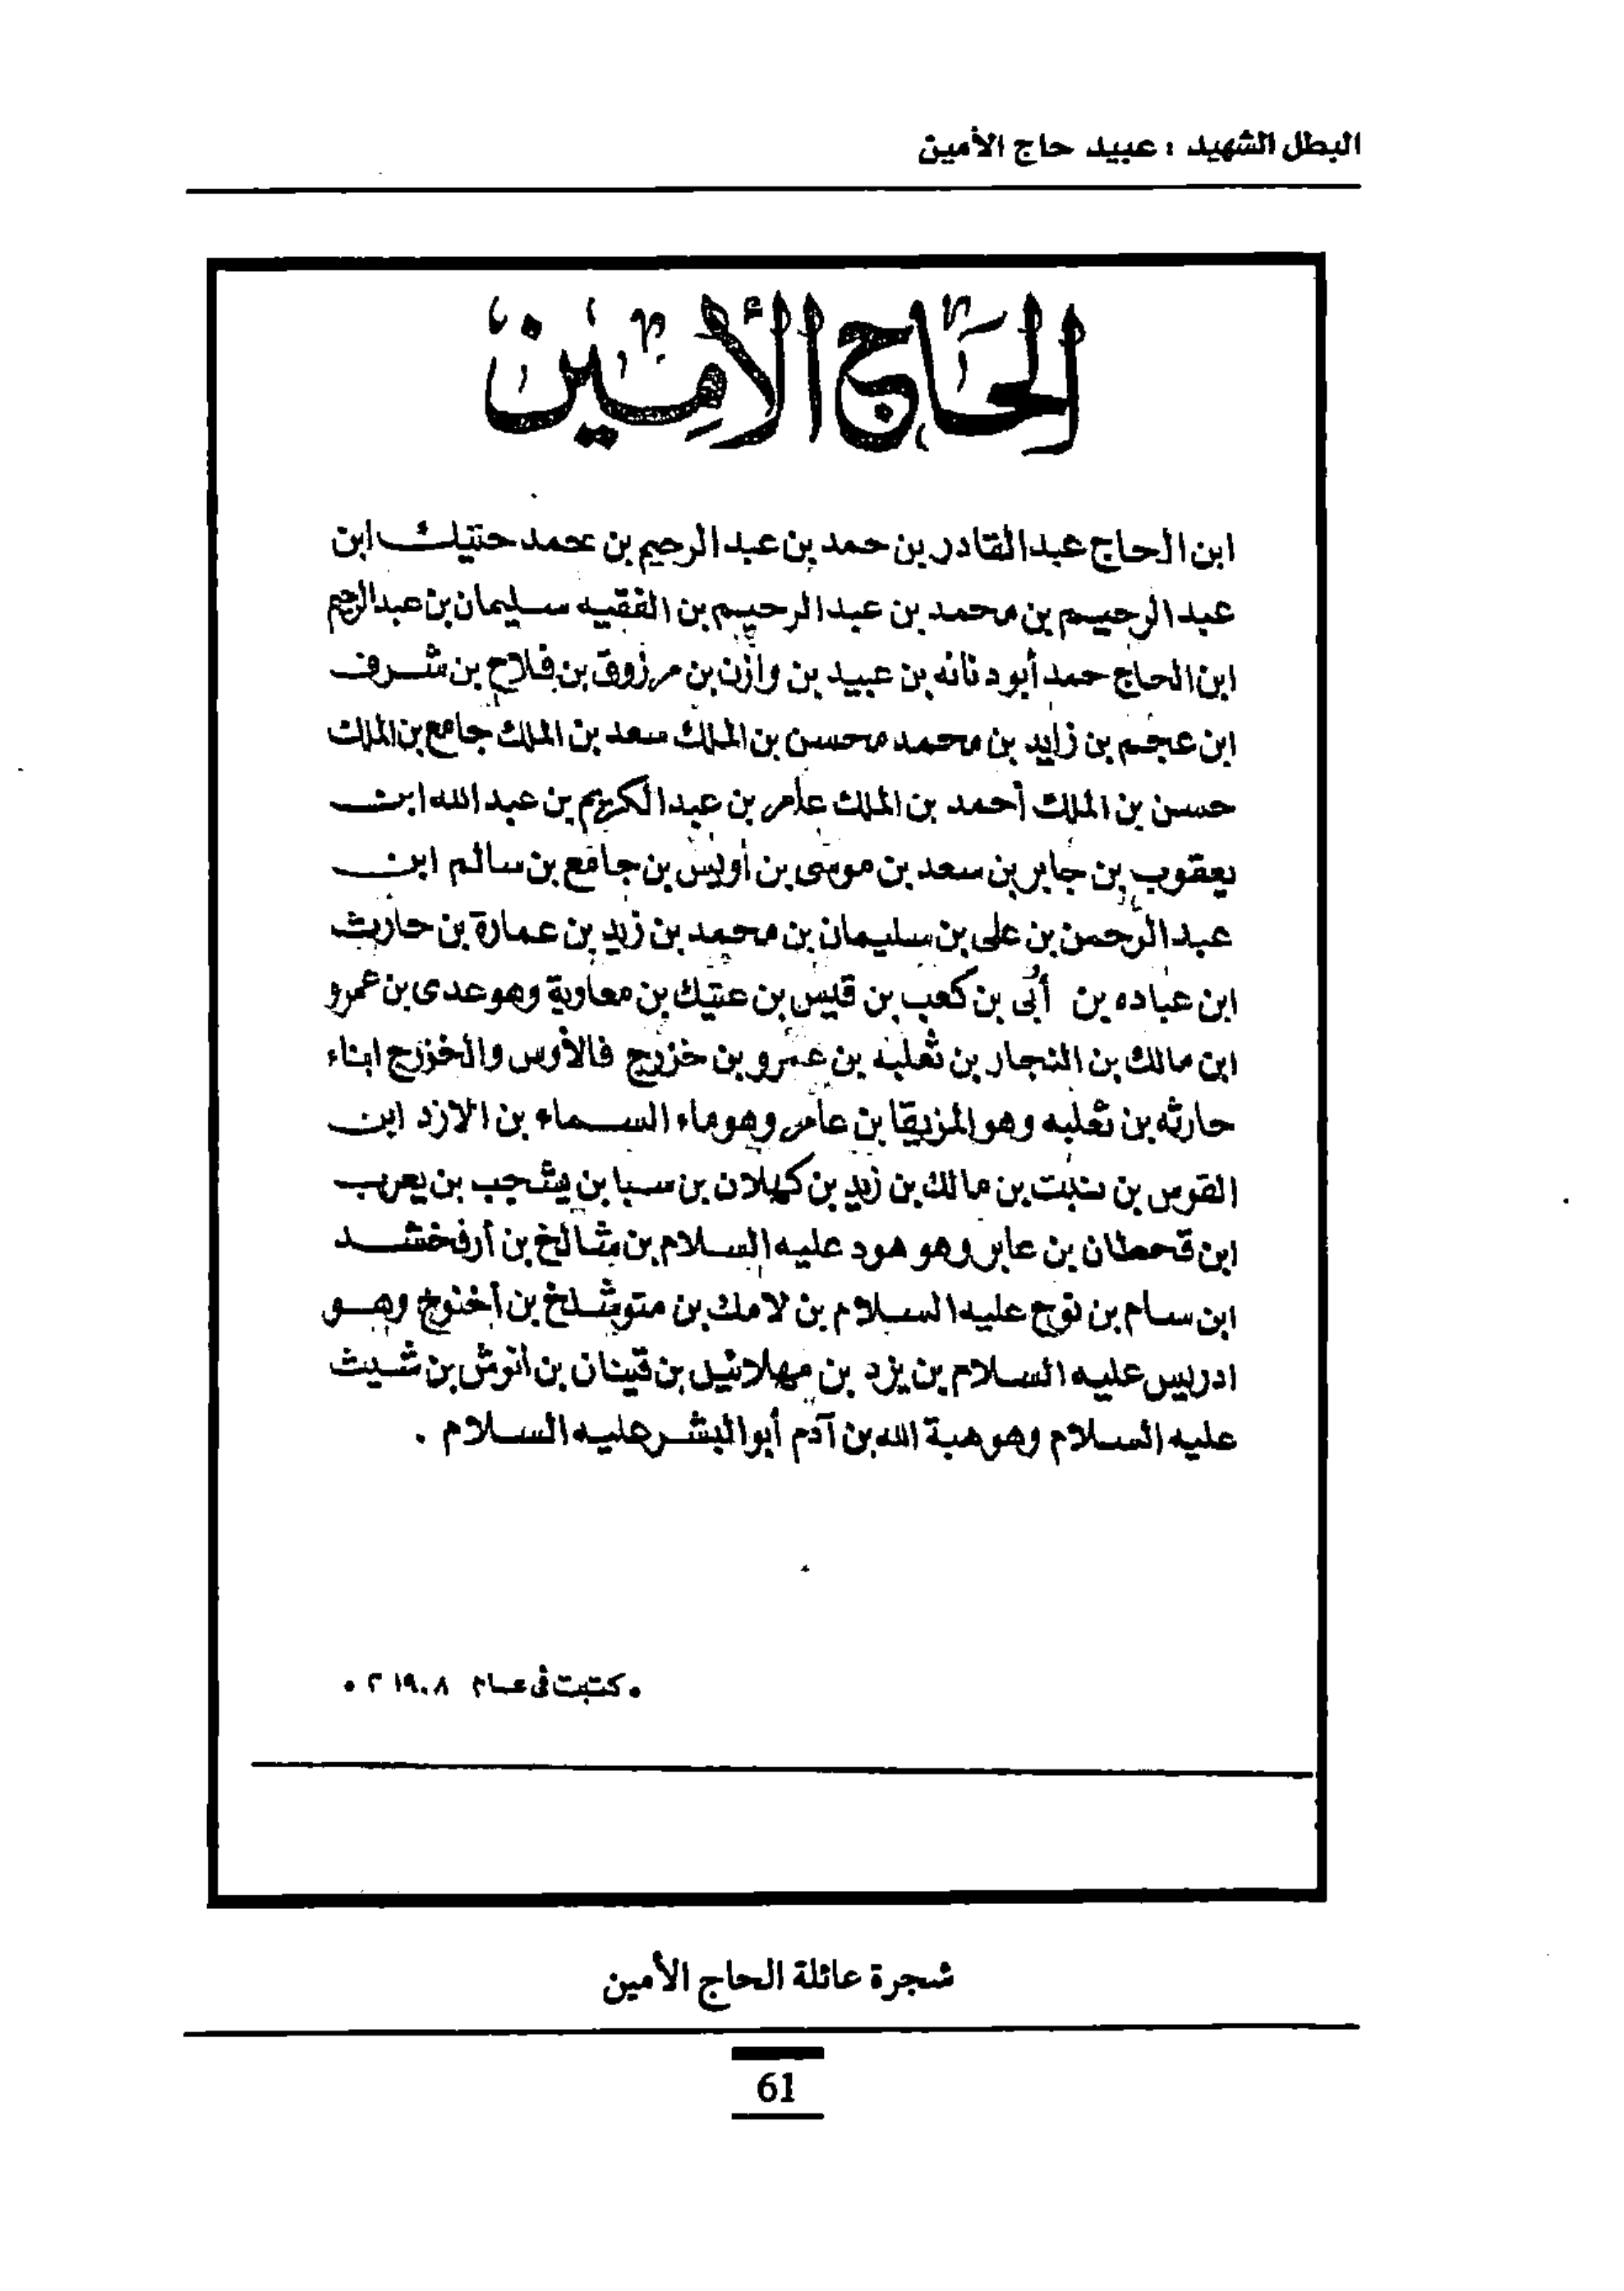 البطل الشهيد : عبيد حاج الأمين
الحاج الأمين
ابن الحاج عبد القادر بن حمد بن عبد الرحيم بن محمد حتيك ابن
عبد الرحيم بن محمد بن عبد الرحيم بن الفقيه سليمان بن عبد الرحيم
ابن الحاج حمد أبو دنانه بن عبيد بن وازن بن مرزوق بن فلاح بن شرف
ابن عجم بن زايد بن محمد محسن بن الملك سعد بن الملك جامع بن الملك
حسن بن الملك أحمد بن الملك عامر بن عبد الكريم بن عبد الله ابن
يعقوب بن جابر بن سعد بن موسى بن أويس بن جامع بن سالم ابن
عبد الرحمن بن على بن سليمان بن محمد بن زيد بن عمارة بن حارث
ابن عباده بن أبى بن كعب بن قيس بن عتيك بن معاوية وهو عدى بن عمرو
ابن مالك بن النجار بن ثعلبه بن عمرو بن خزرج فالأوس والخزرج ابناء
حارثه بن ثعلبه وهو المزيقا بن عامر وهو ماء السماء بن الازد ابن
القوس بن نبت بن مالك بن زيد بن كهلان بن سبا بن يشجب بن يعرب
ابن قحطان بن عابر وهو هود عليه السلام بن شالخ بن أرفخشد
ابن سام بن نوح عليه السلام بن لامك بن متوشلخ بن أخنوخ وهو
ادريس عليه السلام بن يزد بن مهلائيل بن قينان بن انوش بن شيث
عليه السلام وهو هبة الله بن آدم أبو البشر عليه السلام .
• كتبت فى عام ١٩٠٨ م •
شجرة عائلة الحاج الأمين
61